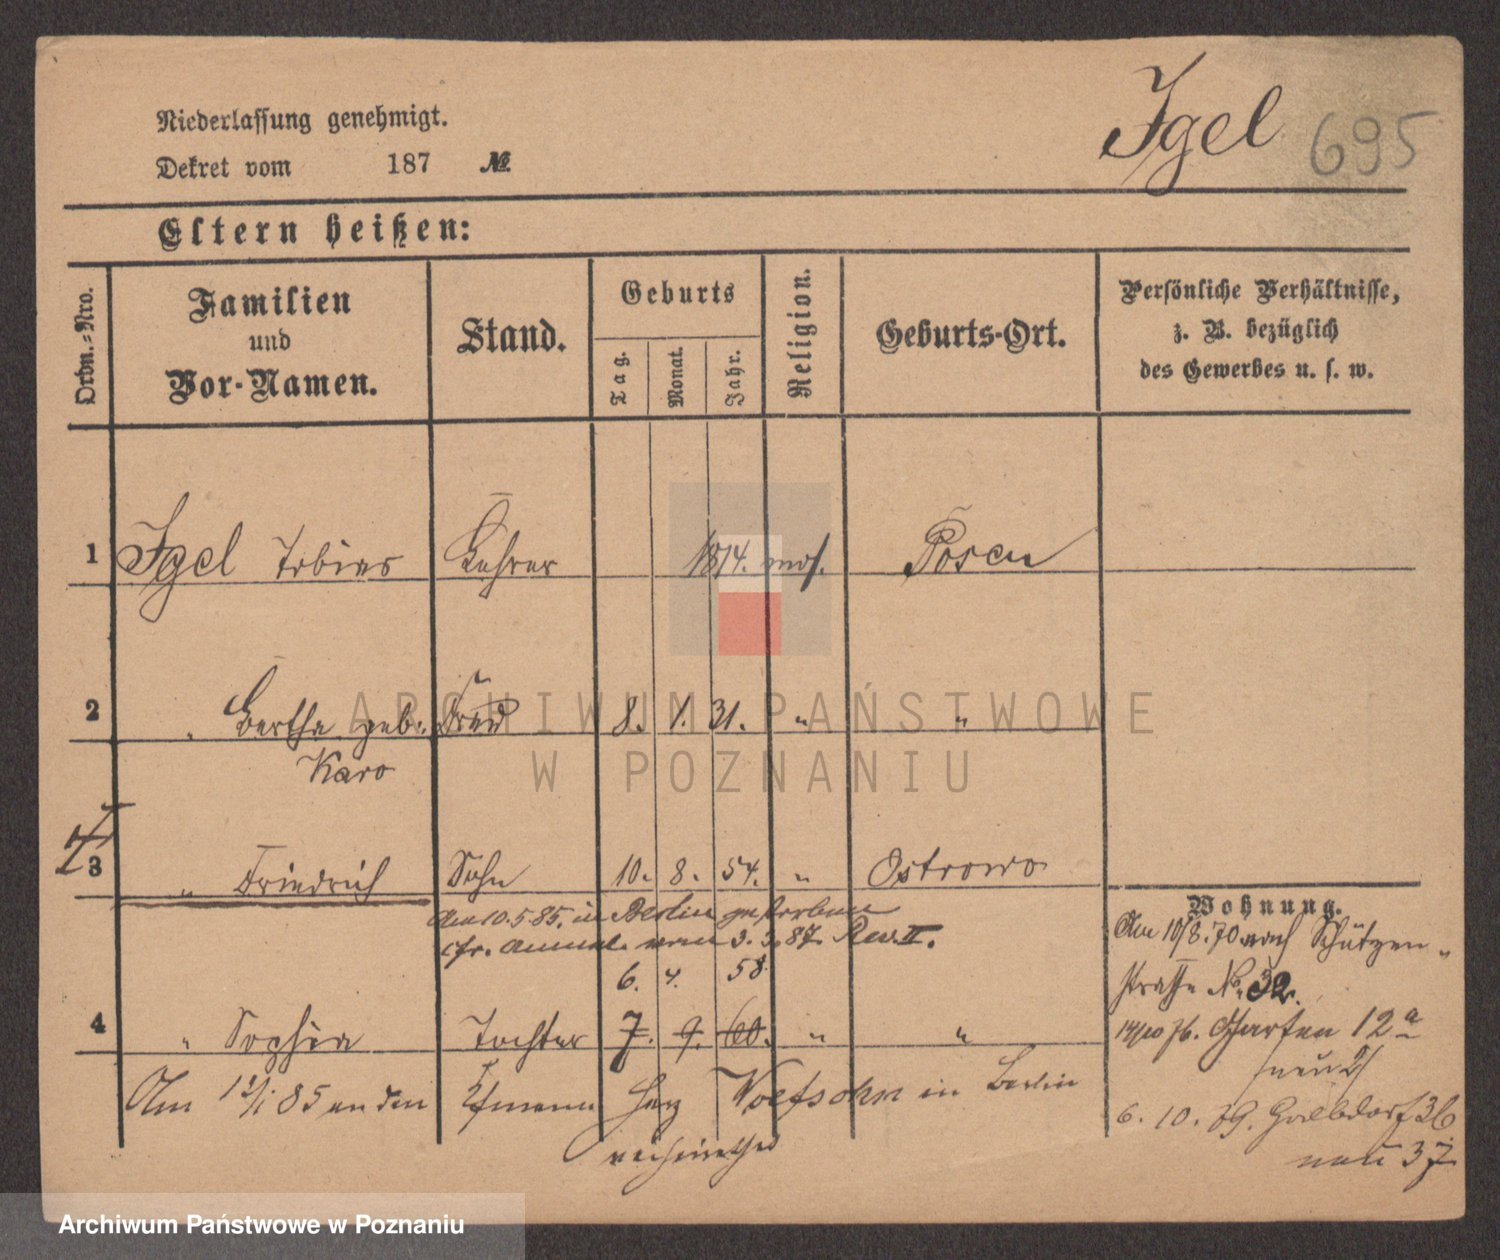 Igel 695
Niederlassung genehmigt.
Dekret vom 187 №
Eltern heißen:
Ordn.-Nro.
Familien
und
Vor-Namen.
Stand.
Geburts
Tag.
Monat.
Jahr.
Religion.
Geburts-Ort.
Persönliche Verhältnisse,
z. B. bezüglich
des Gewerbes u. s. w.
1 Igel Tobias Lehrer 1814. mos. Posen
2 " Bertha geb. Frau 8. 1. 31. " "
Karo
3 " Friedrich Sohn 10. 8. 54. " Ostrowo
Am 10.5.85. in Berlin gestorben
cfr. 3.3.87. Rev. II.
6. 4. 58
4 " Sophia Tochter 7. 9. 60. " "
Am 12/1 85 an den Kfmann in Berlin
verheirathet
Wohnung.
Am 10/8.70 nach Schützen-
straße No. 32.
14/10 76. Garten 12a
neu
6. 10. 89. Halbdorf 36
neu 37
ARCHIWUM PAŃSTWOWE
W POZNANIU
Archiwum Państwowe w Poznaniu